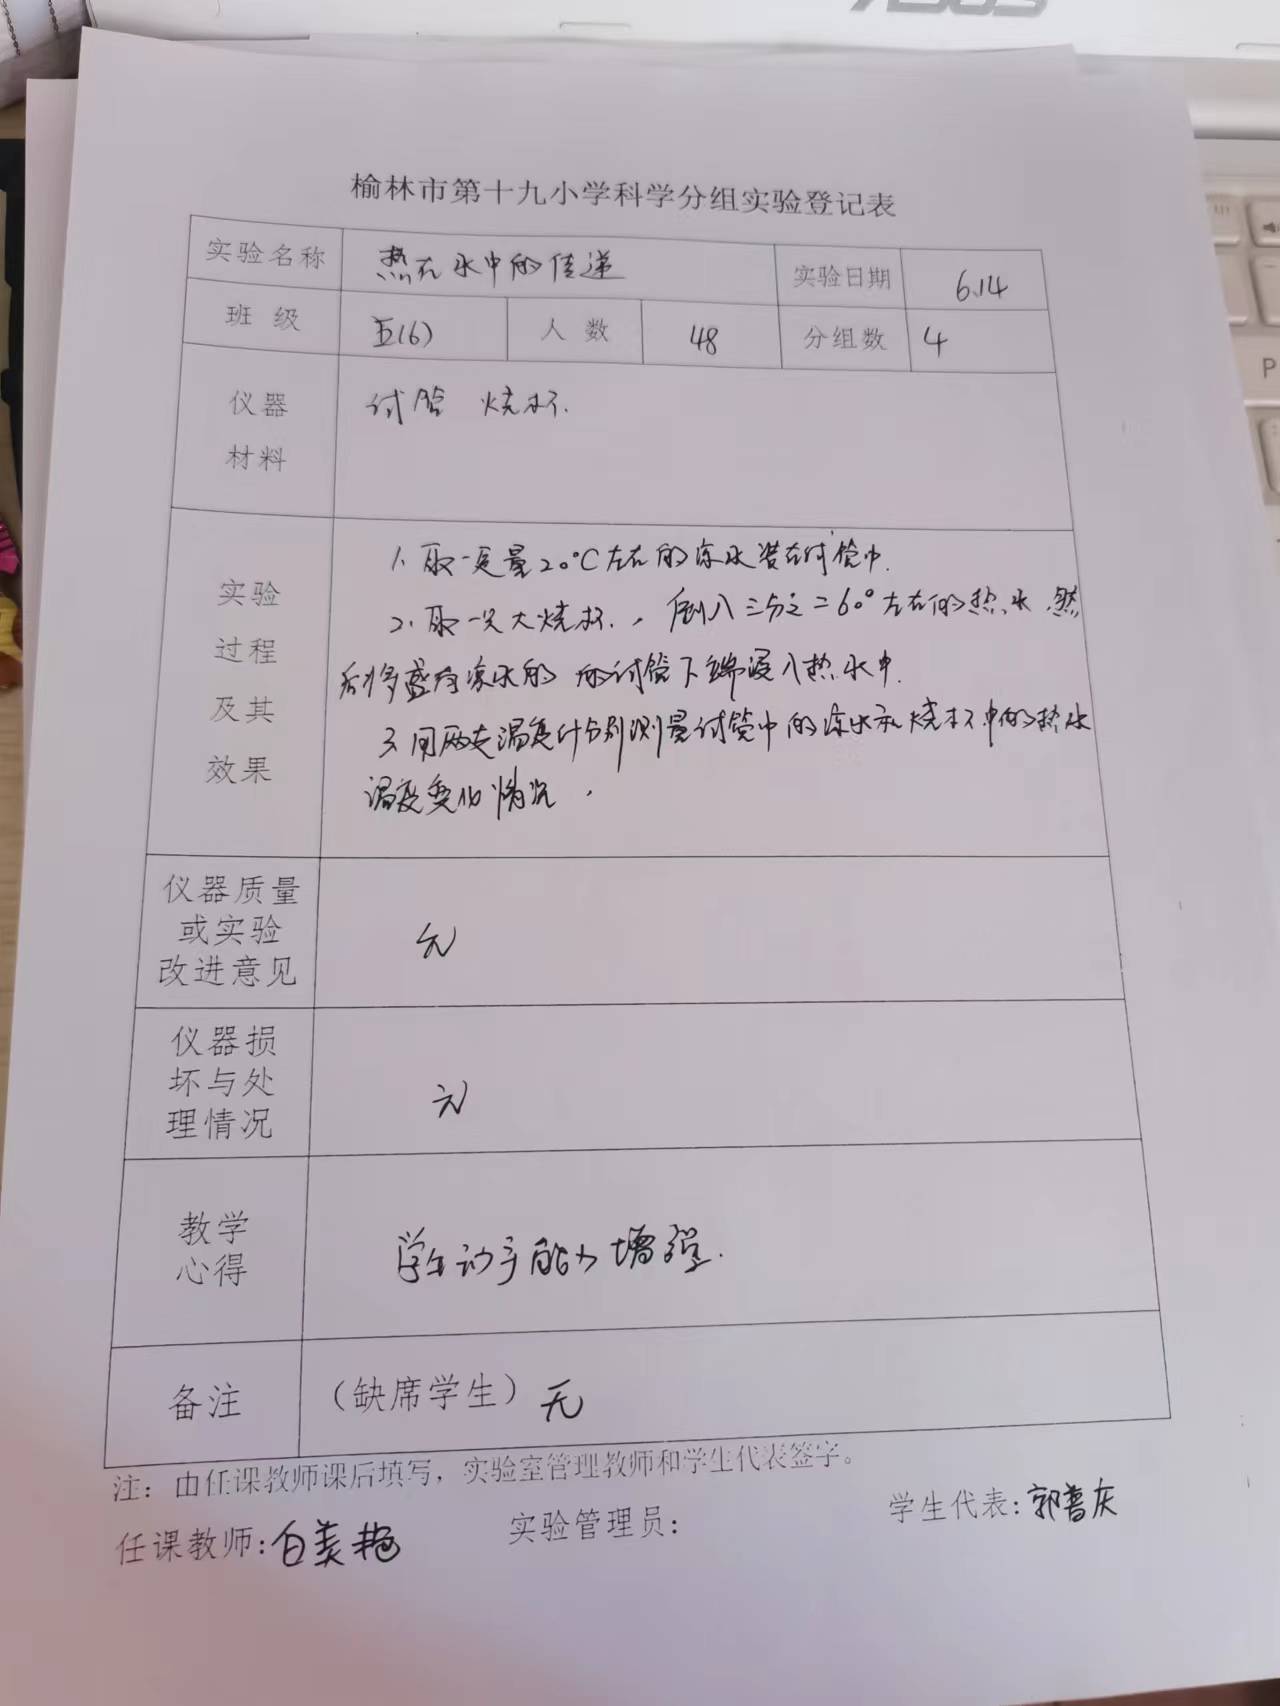 ASUS
榆林市第十九小学科学分组实验登记表
实验名称 热在水中的传递 实验日期 6.14
班 级 五(6) 人 数 48 分组数 4
仪器
材料
试管 烧杯.
实验
过程
及其
效果
1. 取一定量20°C左右的凉水装在试管中.
2. 取一只大烧杯., 倒入三分之二60°左右的热水.然
后将盛有凉水的 的试管下端浸入热水中.
3. 用两支温度计分别测量试管中的凉水和烧杯中的热水
温度变化情况.
仪器质量
或实验
改进意见
无
仪器损
坏与处
理情况
无
教学
心得
学生动手能力增强.
备注 (缺席学生) 无
注: 由任课教师课后填写, 实验室管理教师和学生代表签字。
任课教师: 白美艳 实验管理员: 学生代表: 郭
P